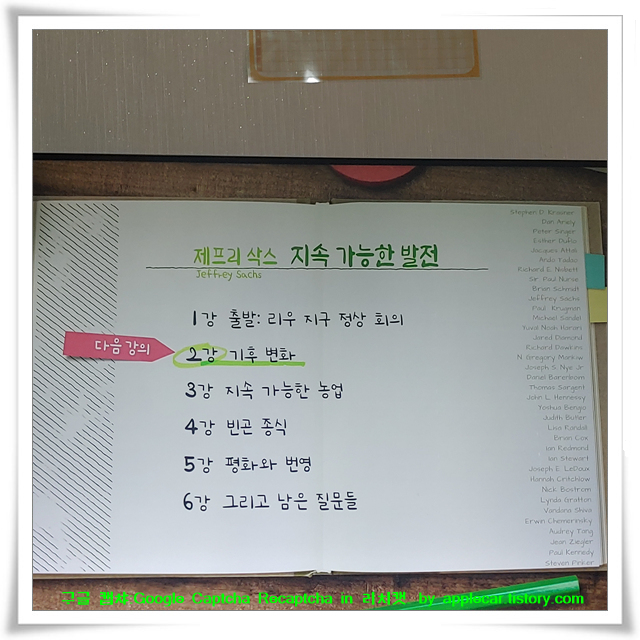 제프리 삭스 지속 가능한 발전
Jeffrey Sachs
1강 출발: 리우 지구 정상 회의
다음 강의
2강 기후 변화
3강 지속 가능한 농업
4강 빈곤 종식
5강 평화와 번영
6강 그리고 남은 질문들
Stephen D. Krasner
Dan Ariely
Peter Singer
Esther Duflo
Jacques Attali
Ando Tadao
Richard E. Nisbett
Sir Paul Nurse
Brian Schmidt
Jeffrey Sachs
Paul Krugman
Michael Sandel
Yuval Noah Harari
Jared Diamond
Richard Dawkins
N. Gregory Mankiw
Joseph S. Nye Jr.
Daniel Barenboim
Thomas Sargent
John L. Hennessy
Yoshua Bengio
Judith Butler
Lisa Randall
Brian Cox
Ian Redmond
Ian Stewart
Joseph E. LeDoux
Hannah Critchlow
Nick Bostrom
Lynda Gratton
Vandana Shiva
Erwin Chemerinsky
Audrey Tang
Jean Ziegler
Paul Kennedy
Steven Pinker
구글 캡챠 Google Captcha Recaptcha in 러시챗 by applecar.tistory.com